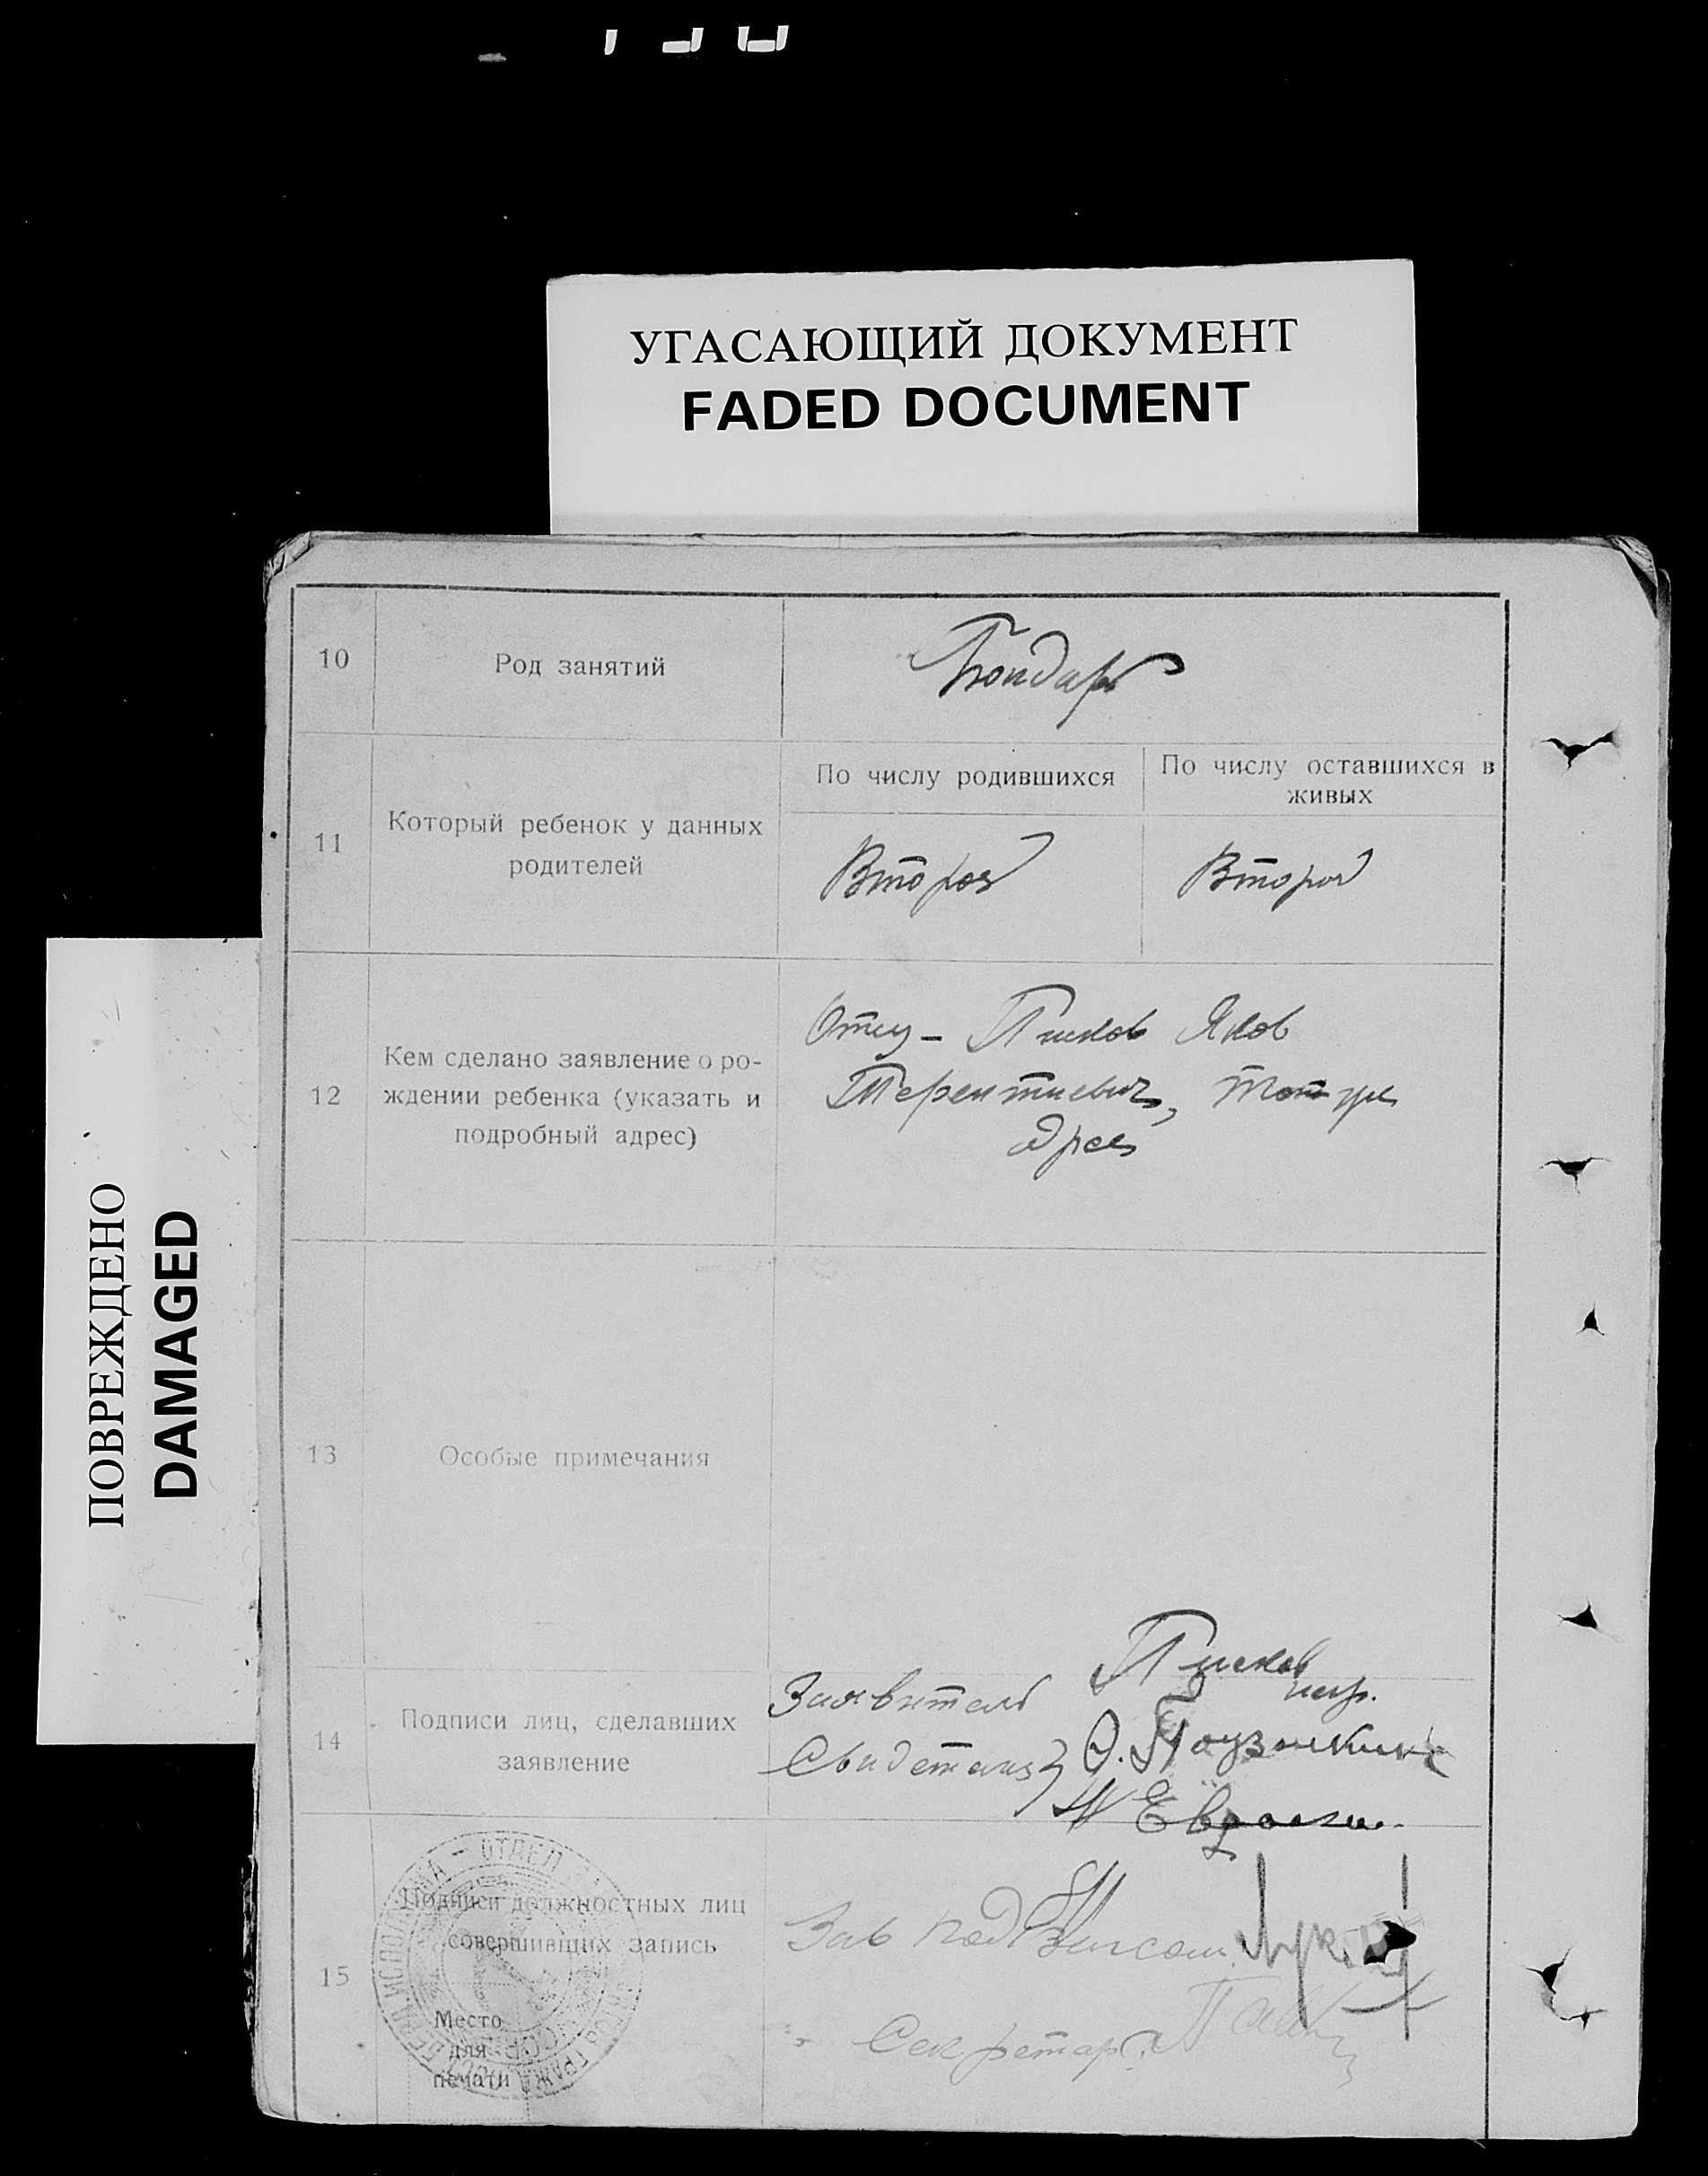 УГАСАЮЩИЙ ДОКУМЕНТ
FADED DOCUMENT
ПОВРЕЖДЕНО
DAMAGED
10 Род занятий Бондарь
11 Который ребенок у данных
родителей
По числу родившихся
По числу оставшихся в
живых
Второй
Второй
12 Кем сделано заявление о ро-
ждении ребенка (указать и
подробный адрес)
Отец - Писков Яков
Терентиевич, тот же
адрес
13 Особые примечания
14 Подписи лиц, сделавших
заявление
Заявитель Писков
Свидетели
15 Подписи должностных лиц
совершивших запись
Место
для
печати
Зав
Секретарь
ОТДЕЛ